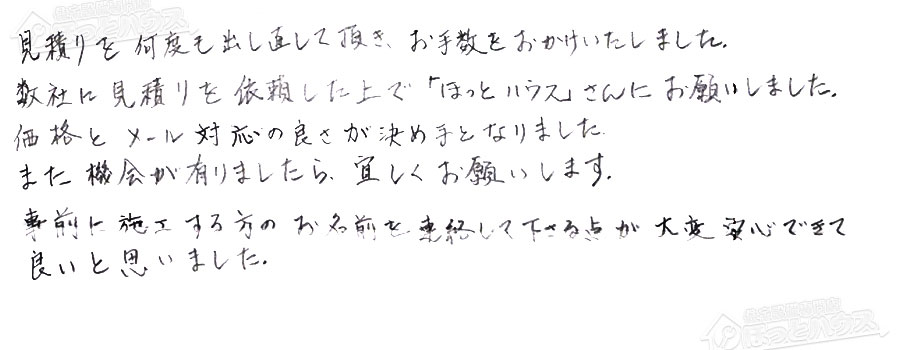 見積りを何度も出し直して頂き、お手数をおかけいたしました。
数社に見積りを依頼した上で「ほっとハウス」さんにお願いしました。
価格とメール対応の良さが決め手となりました。
また機会が有りましたら、宜しくお願いします。
事前に施工する方のお名前を連絡して下さる点が大変安心できて
良いと思いました。
住宅設備専門店
ほっとハウス